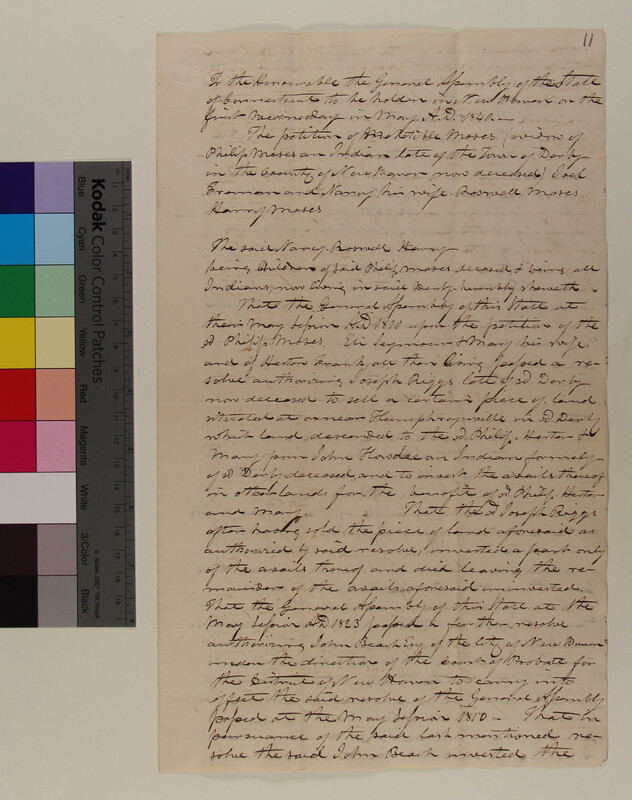 11
To the Honourable the General Assembly of the State
of Connecticut to be holden in New Haven on the
first Wednesday in May A.D. 1840.—
The petition of Mehetible Moses (widow of
Philip Moses an Indian late of the Town of Derby
in the County of New Haven now deceased) Joel
Freeman and Nancy his wife Roswell Moses
Harry Moses
The said Nancy, Roswell Harry
being Children of said Philip Moses deceased & being all
Indians now living in said Derby humbly sheweth
That the General Assembly of this State at
their May Session A.D. 1810 upon the petition of the
sd. Philip Moses Eli Seymour & Mary his wife
and of Hester Frank all then living passed a re-
solve authorizing Joseph Riggs late of sd Derby
now deceased to sell a certain piece of land
situated at or near Humphreysville in sd Derby
which land descended to the sd. Philip, Hester &
Mary from John Howdee an Indian formerly
of sd Derby deceased and to invest the avails thereof
in other lands for the benefit of sd Philip Hester
and Mary. That the sd Joseph Riggs
after having sold the piece of land aforesaid as
authorized by said resolve, invested a part only
of the avails thereof and died leaving the re-
mainder of the avails aforesaid uninvested.
That the General Assembly of this State at the
May Session A.D. 1823 passed a further resolve
authorizing John Beach Esq of the City of New Haven
under the direction of the Court of Probate for
the District of New Haven to carry into
effect the said resolve of the General Assembly
passed at the May Session 1810 — That in
pursuance of the said last mentioned re-
solve the said John Beach invested the
Kodak Color Control Patches
Blue
Cyan
Green
Yellow
Red
Magenta
White
3/Color
Black